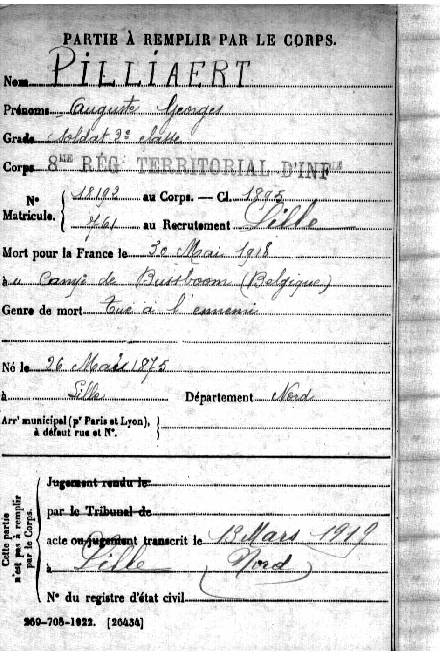 PARTIE À REMPLIR PAR LE CORPS.
Nom PILLIAERT
Prénoms Auguste Georges
Grade Soldat 2e classe
Corps 8ME RÉG TERRITORIAL D'INFIE
N° Matricule. { 18192 au Corps. — Cl. 1895
761 au Recrutement Lille
Mort pour la France le 30 Mai 1918
à u Camp de Bussboom (Belgique)
Genre de mort Tué à l'ennemi
Né le 26 Mars 1875
à Lille Département Nord
Arrt municipal (pr Paris et Lyon), à défaut rue et N°. }
Cette partie n'est pas à remplir par le Corps.
Jugement rendu le
par le Tribunal de
acte ou jugement transcrit le 13 Mars 1919
à Lille Nord
N° du registre d'état civil
269-708-1922. [26434]